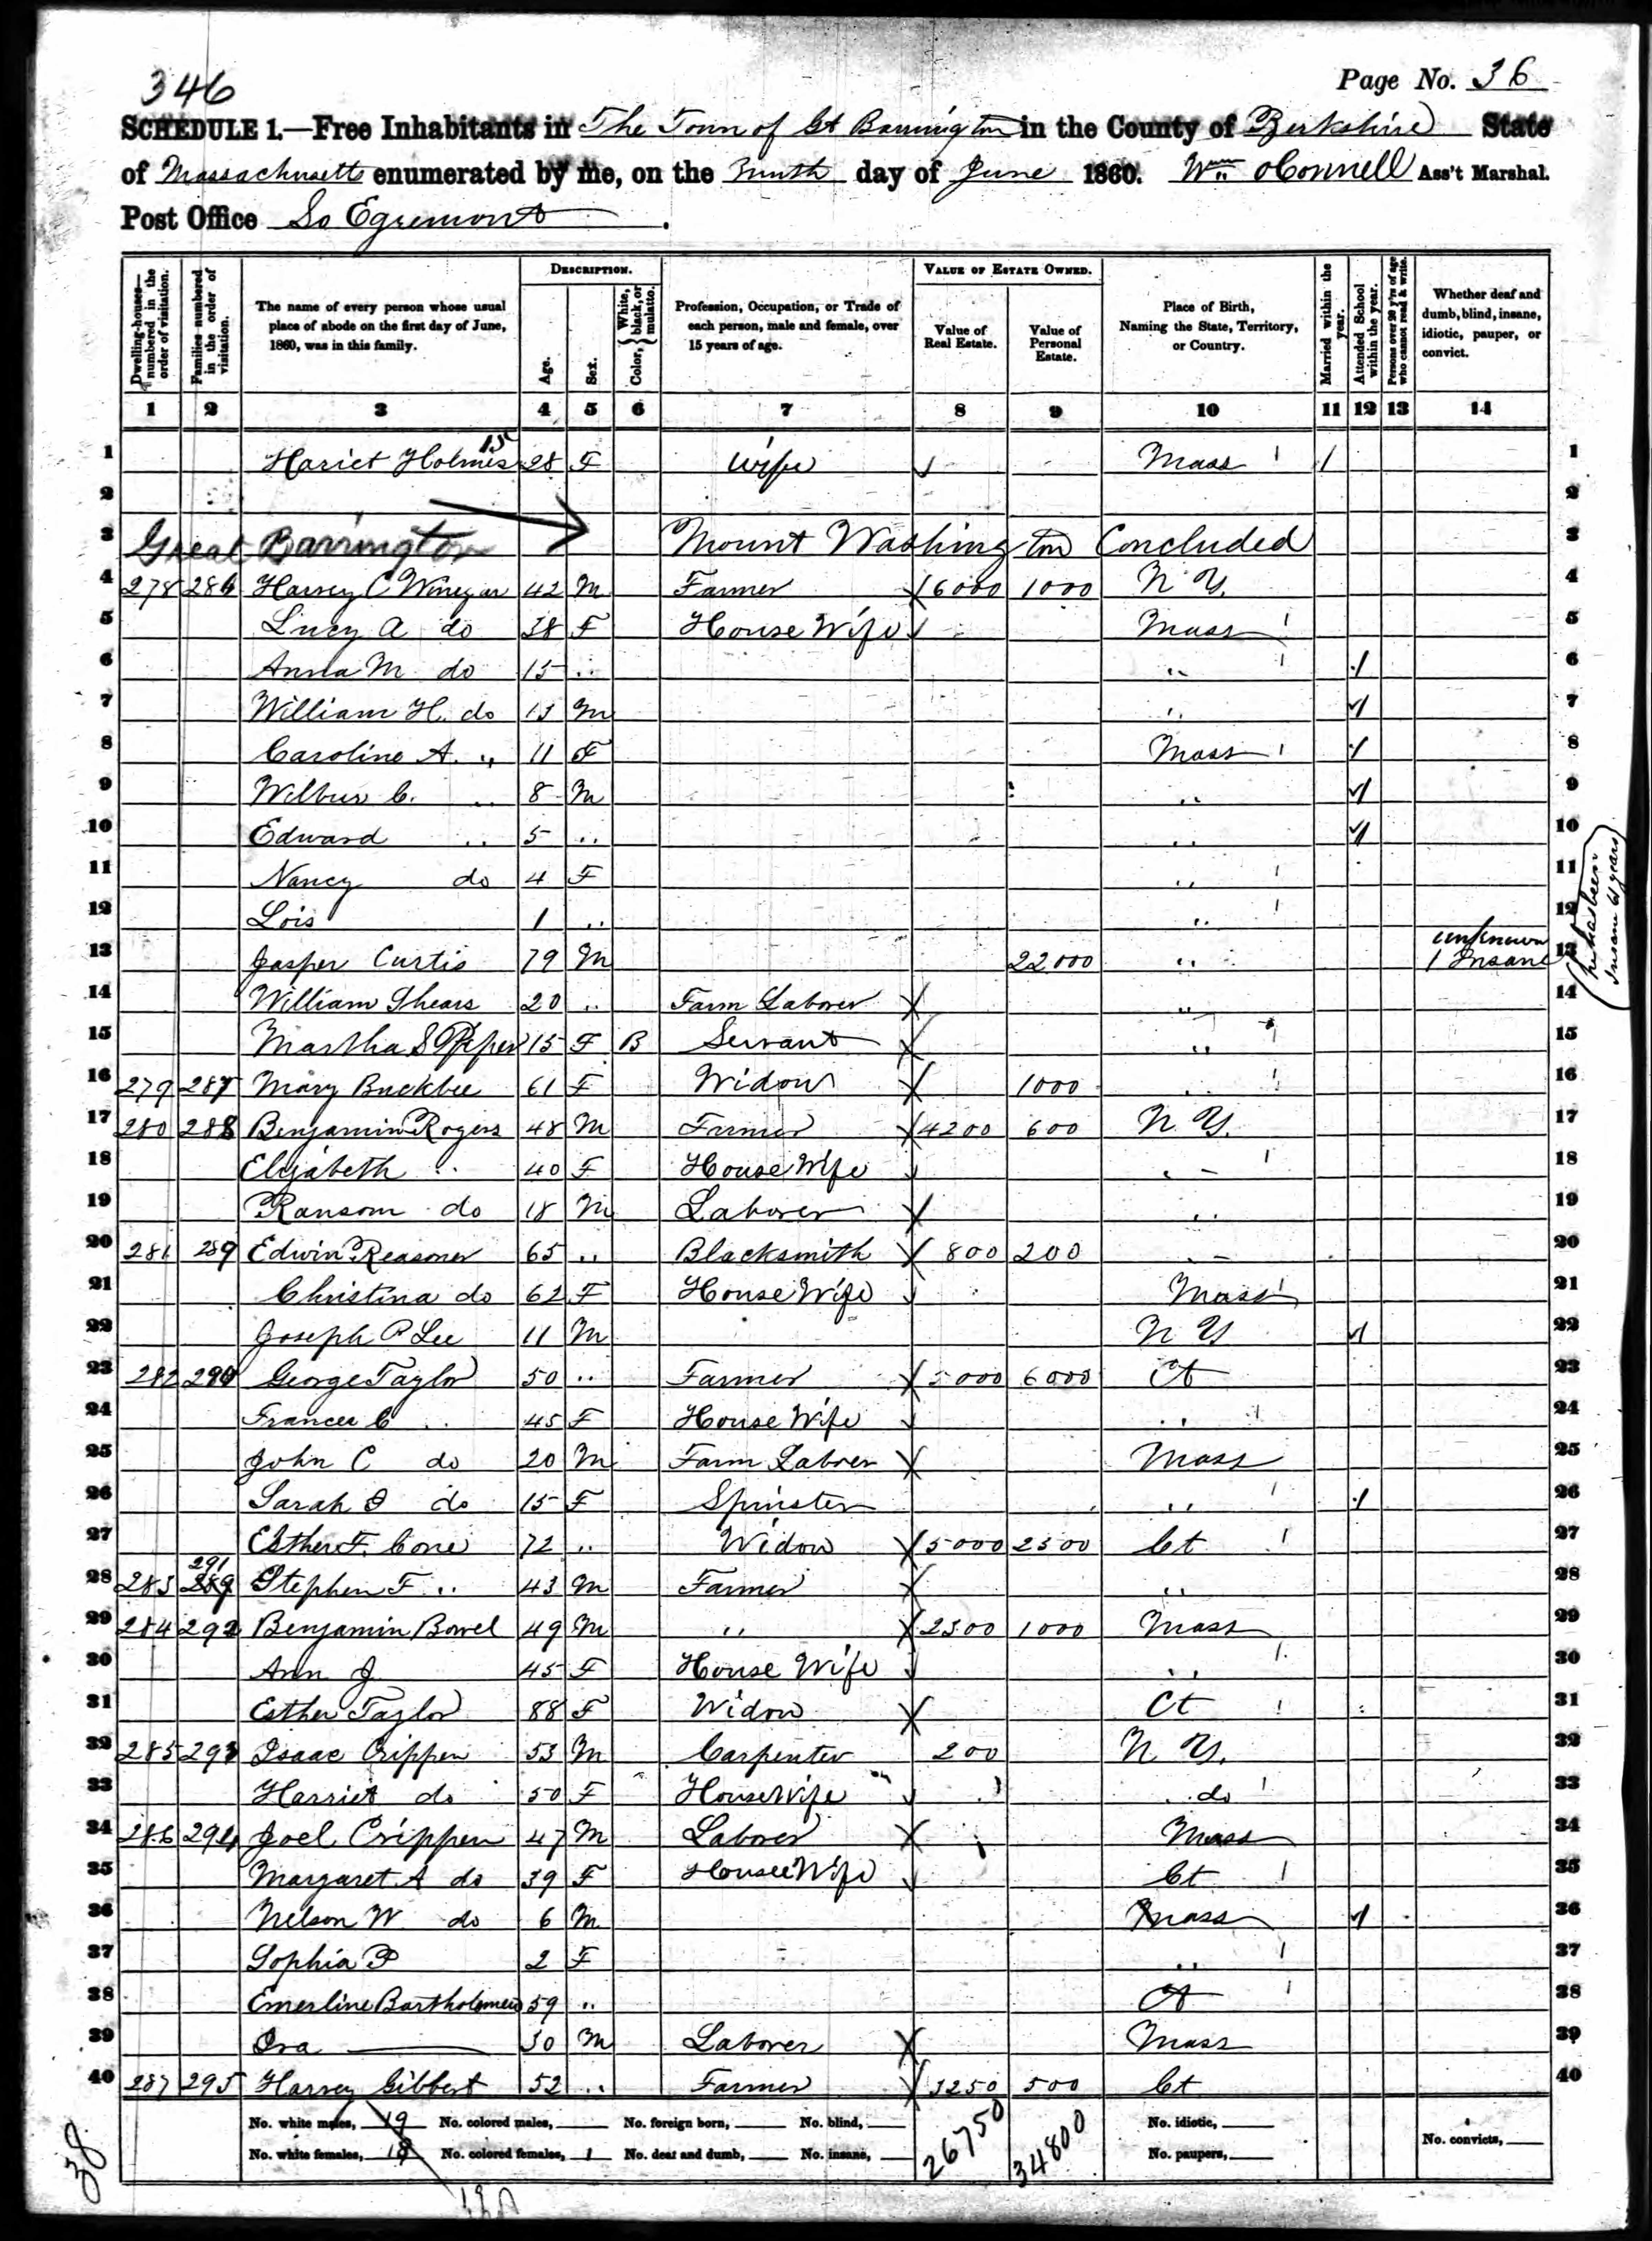 346
Page No. 36
SCHEDULE 1.—Free Inhabitants in The Town of Gt Barrington in the County of Berkshire State
of Massachusetts enumerated by me, on the Ninth day of June 1860. Wm OConnell Ass't Marshal.
Post Office So Egremont.
Dwelling-houses—numbered in the order of visitation.
Families numbered in the order of visitation.
The name of every person whose usual place of abode on the first day of June, 1860, was in this family.
DESCRIPTION.
Age.
Sex.
Color, White, black, or mulatto.
Profession, Occupation, or Trade of each person, male and female, over 15 years of age.
VALUE OF ESTATE OWNED.
Value of Real Estate.
Value of Personal Estate.
Place of Birth, Naming the State, Territory, or Country.
Married within the year.
Attended School within the year.
Persons over 20 y'rs of age who cannot read & write.
Whether deaf and dumb, blind, insane, idiotic, pauper, or convict.
1 2 3 4 5 6 7 8 9 10 11 12 13 14
1 Hariet Holmes 28 F Wife Mass / 1
2 2
3 Great Barrington Mount Washington Concluded 3
4 278 286 Harvey C Winegar 42 M Farmer 6000 1000 N Y. 4
5 Lucy A do 38 F House Wife Mass 5
6 Anna M do 15 .. .. / 6
7 William H. do 13 M .. / 7
8 Caroline A. " 11 F Mass / 8
9 Wilbur C. .. 8 M .. / 9
10 Edward .. 5 .. .. / 10
11 Nancy do 4 F .. 11
12 Lois 1 .. .. 12
13 Jasper Curtis 79 M 22000 .. unknown / Insane 13
(he has been Insane 61 years)
14 William Shears 20 .. Farm Laborer .. 14
15 Martha S Pepper 15 F B Servant .. 15
16 279 287 Mary Buckbee 61 F Widow 1000 .. 16
17 280 288 Benjamin Rogers 48 M Farmer 4200 600 N Y. 17
18 Elizabeth .. 40 F House Wife .. 18
19 Ransom do 18 M Laborer .. 19
20 281 289 Edwin Reasoner 65 .. Blacksmith 800 200 .. 20
21 Christina do 62 F House Wife Mass 21
22 Joseph P Lee 11 M N Y / 22
23 282 290 George Taylor 50 .. Farmer 5000 6000 Ct 23
24 Frances C .. 45 F House Wife .. 24
25 John C do 20 M Farm Laborer Mass 25
26 Sarah I do 15 F Spinster .. / 26
27 Esther F. Cone 72 .. Widow 5000 2500 Ct 27
28 283 291 289 Stephen F .. 43 M Farmer .. 28
29 284 292 Benjamin Bowel 49 M .. 2500 1000 Mass 29
30 Ann J 45 F House Wife .. 30
31 Esther Taylor 88 F Widow Ct 31
32 285 293 Isaac Crippen 53 M Carpenter 200 N Y. 32
33 Harriet do 50 F House Wife do 33
34 286 294 Joel Crippen 47 M Laborer Mass 34
35 Margaret A do 39 F House Wife Ct 35
36 Nelson W do 6 M Mass / 36
37 Sophia P 2 F .. 37
38 Emerline Bartholomew 59 .. Ct 38
39 Ira — 30 M Laborer Mass 39
40 287 295 Harvey Gibbert 52 .. Farmer 3250 500 Ct 40
No. white males, 19 No. colored males, No. foreign born, No. blind, 26750 34800 No. idiotic,
No. white females, 18 No. colored females, 1 No. deaf and dumb, No. insane, No. paupers, No. convicts,
38